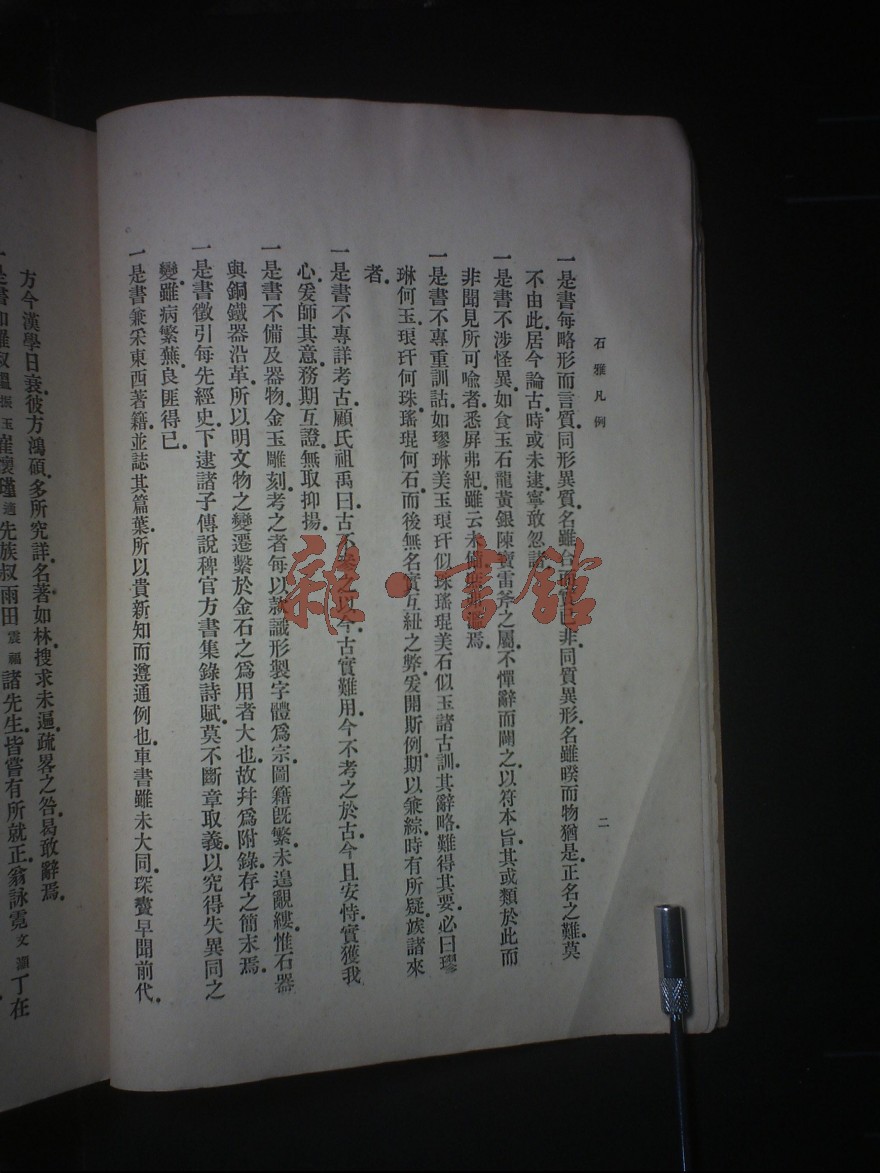 石雅凡例
二
一是書每略形而言質同形異質名雖台而實已非同質異形名雖暌而物猶是正名之難莫
不由此居今論古時或未逮寧敢忽諸
一是書不涉怪異如食玉石龍黃銀陳寶雷斧之屬不憚辭而闢之以符本旨其或類於此而
非聞見所可喩者悉屏弗紀雖云未備焉
一是書不專重訓詁如璆琳美玉琅玕似珠瑤琨美石似玉諸古訓其辭略難得其要必曰璆
琳何玉琅玕何珠瑤琨何石而後無名實互紐之弊爰開斯例期以兼綜時有所疑竢諸來
者
一是書不專詳考古顧氏祖禹曰古不參之以今古實難用今不考之於古今且安恃實獲我
心爰師其意務期互證無取抑揚
一是書不備及器物金玉雕刻考之者每以款識形製字體爲宗圖籍旣繁未遑覼縷惟石器
與銅鐵器沿革所以明文物之變遷繫於金石之爲用者大也故幷爲附錄存之簡末焉
一是書徵引每先經史下逮諸子傳說稗官方書集錄詩賦莫不斷章取義以究得失異同之
變雖病繁蕪良匪得已
一是書兼采東西著籍並誌其篇葉所以貴新知而遵通例也車書雖未大同琛賮早聞前代
方今漢學日衰彼方鴻碩多所究詳名著如林搜求未遍疏畧之咎曷敢辭焉
一是書如羅叔振玉崔懷瑾適先族叔雨田震福諸先生皆嘗有所就正翁詠霓文灝丁在
雜·書館